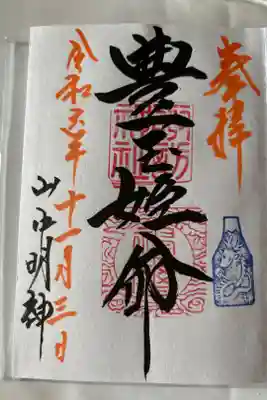 奉拝
豊玉姫命
令和六年十一月三日
山下明神